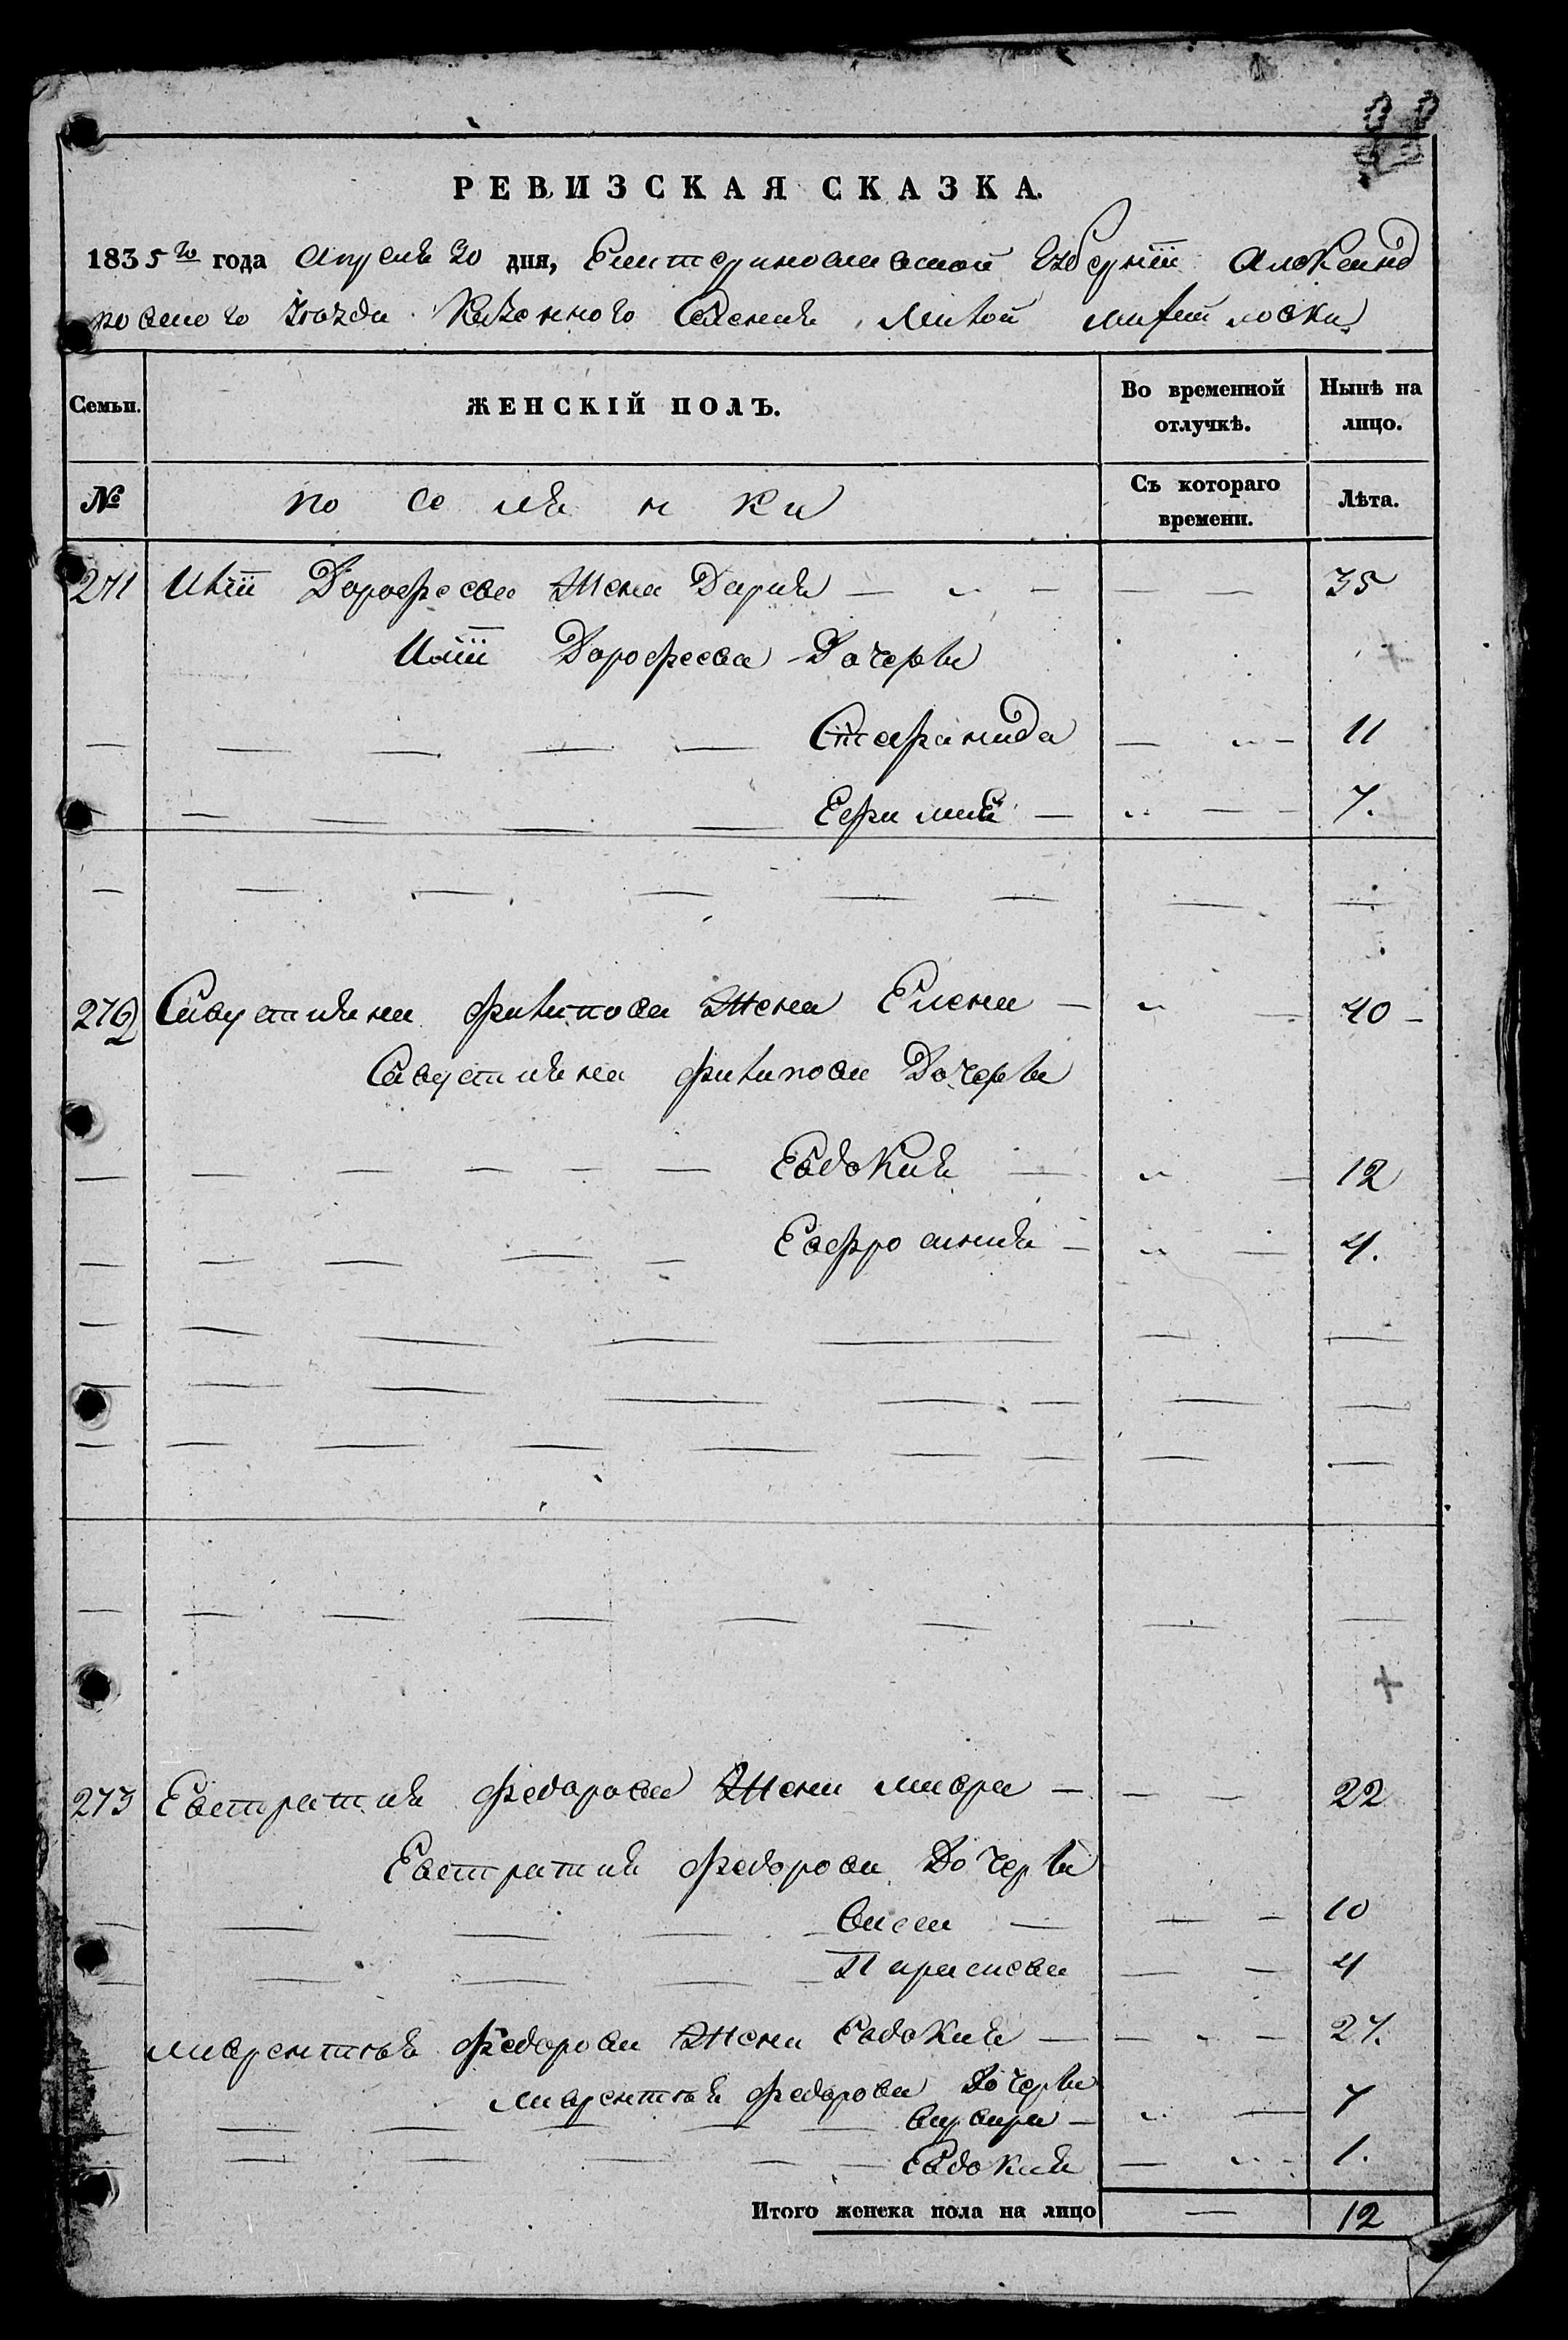 РЕВИЗСКАЯ СКАЗКА.
1835го года Апреля 30 дня, Екатеринославской Губернiи Александ
ровскаго Уезда Казенного Селения Малой михайловски
Семьи.
ЖЕНСКІЙ ПОЛЪ.
Во временной отлучкѣ.
Нынѣ на лицо.
№
по се ля н ки
Съ котораго времени.
Лѣта.
271 Ильи Дорофеева Жена Дарья — 35
Ильи Дорофеева Дочери
Стефанида 11
Ефимия — 7.
272 Савустияна филипова Жена Елена — 40
Савустияна филипова Дочери
Евдокия — 12
Евфросиния — 4.
273 Евстратия федорова Жена мавра — 22
Евстратия федорова Дочери
васса — 10
Парасковя 4
лаврентия федорова Жена Евдокия — 27.
лаврентия федорова Дочери
варвара — 7
Евдокия 1.
Итого женска пола на лицо — 12